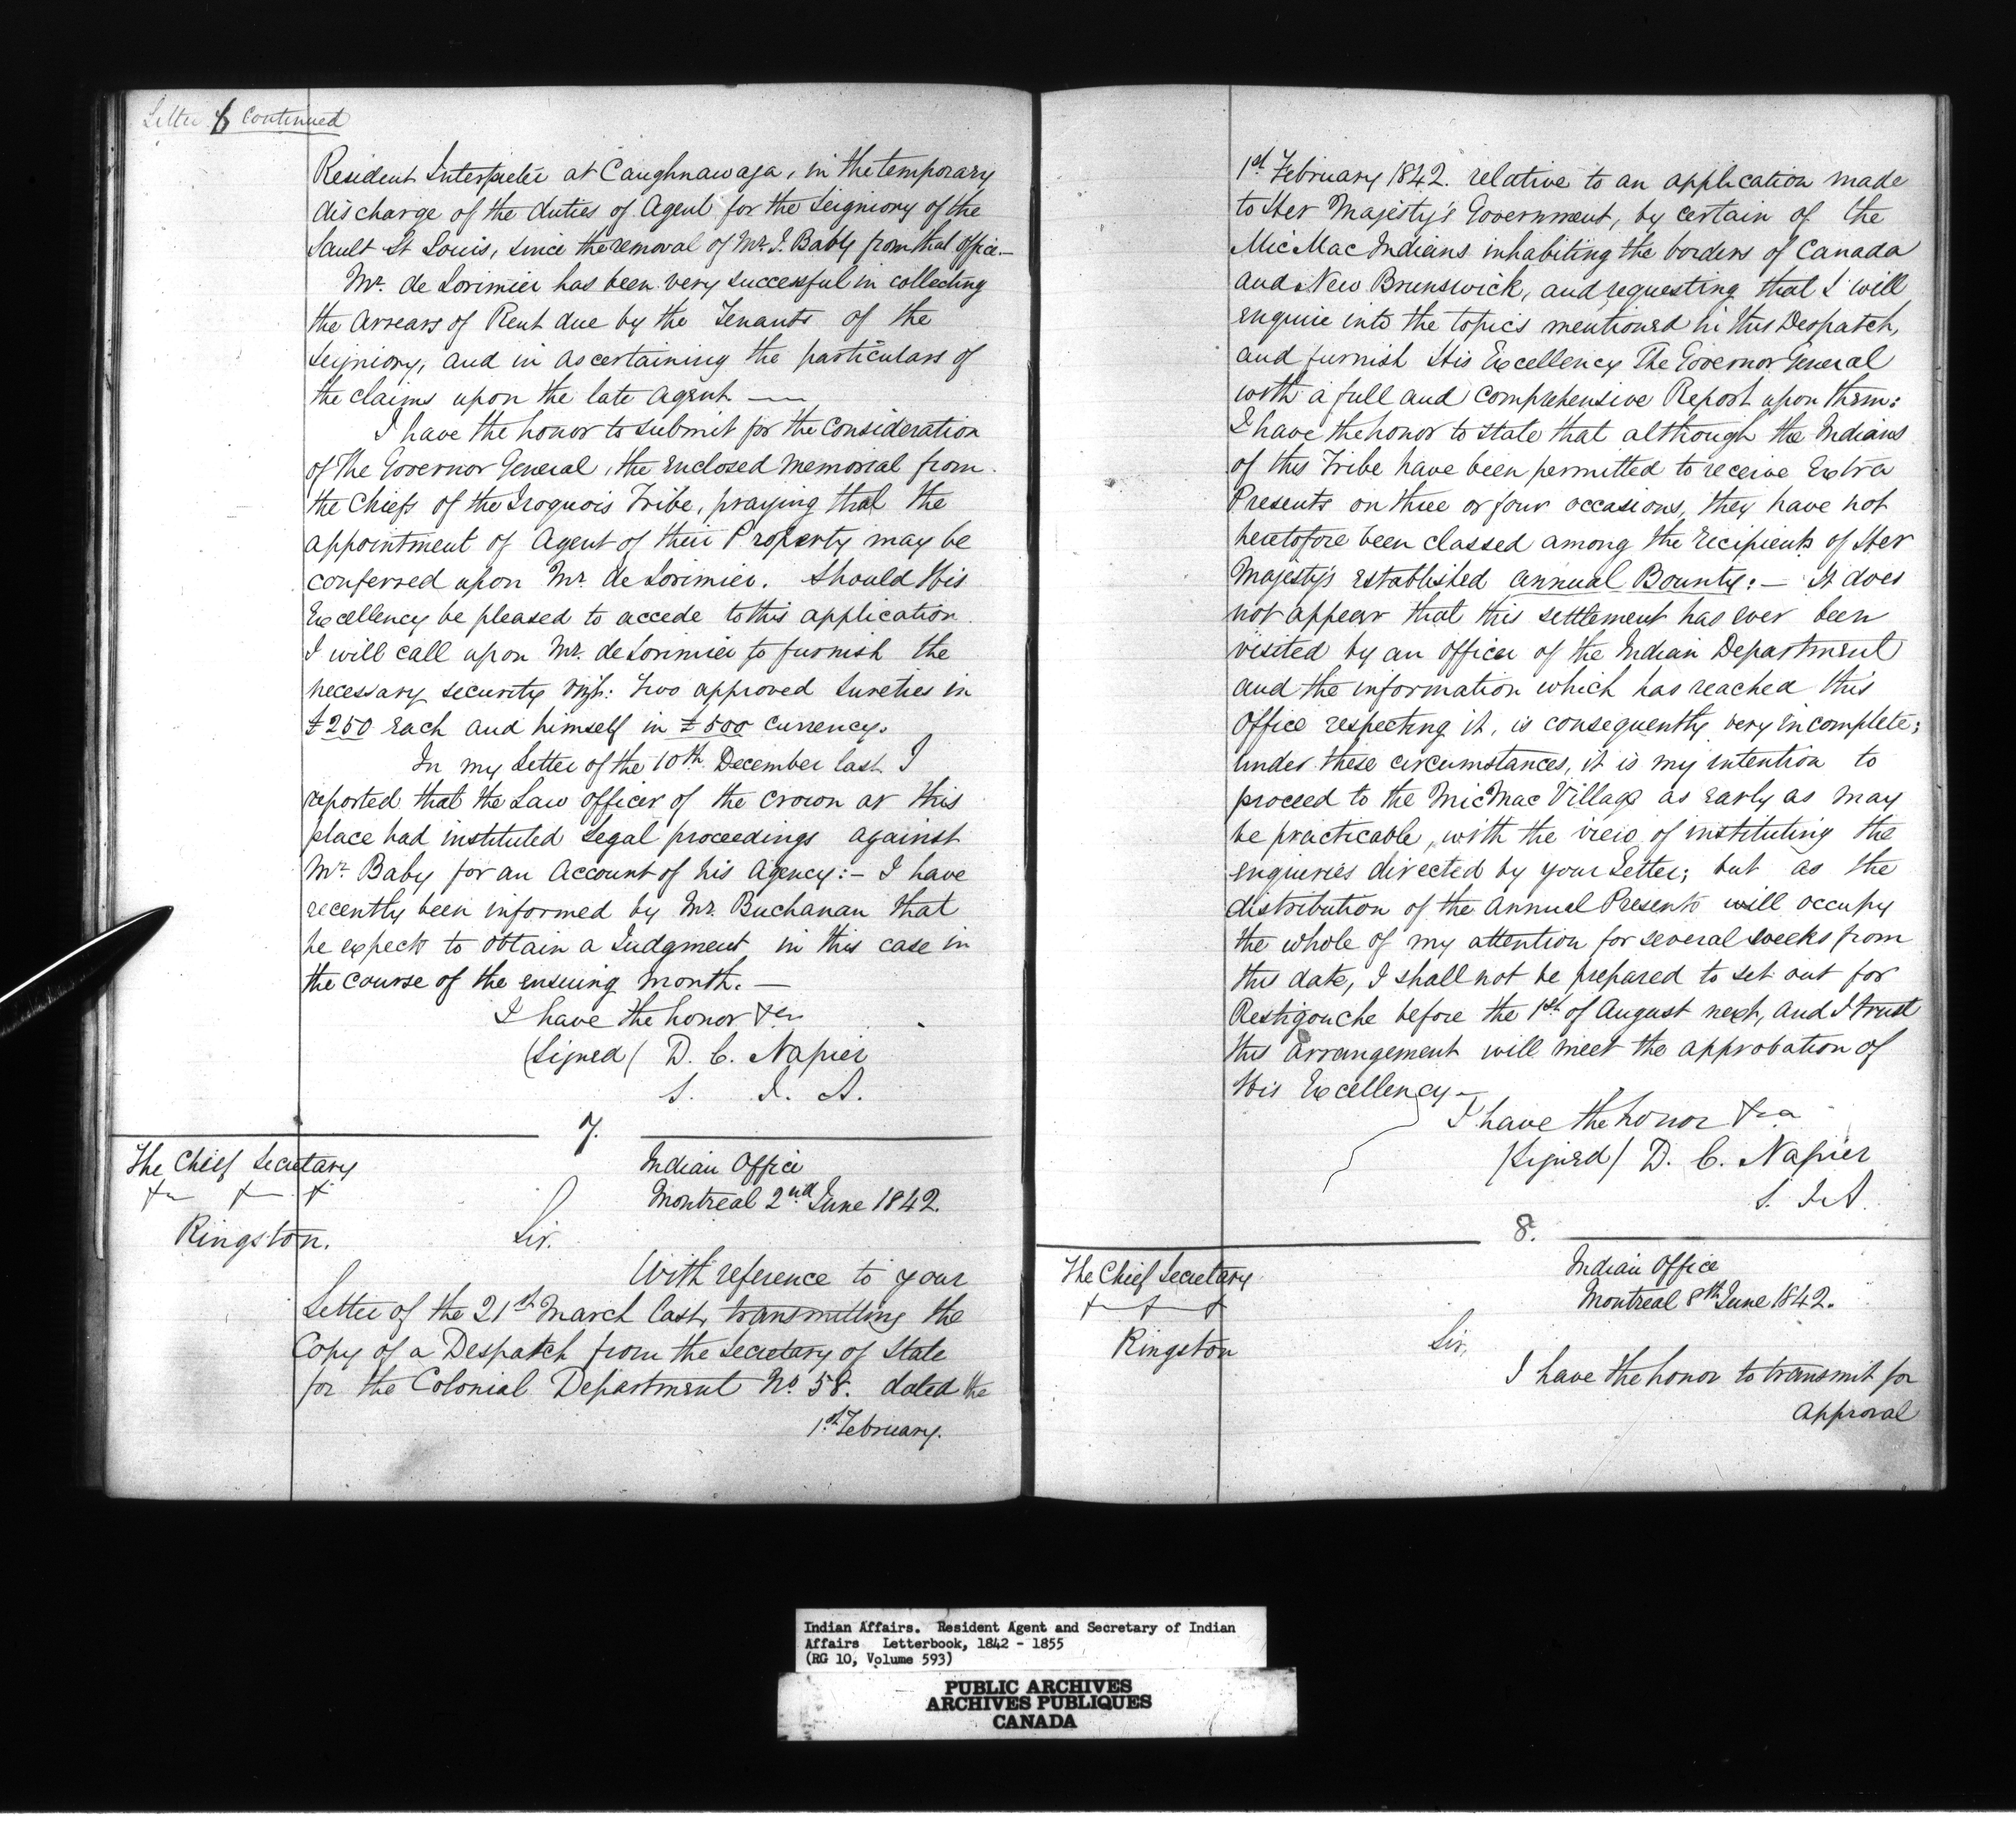 Letter 6 Continued
Resident Interpreter at Caughnawaga, in the temporary
discharge of the duties of Agent for the Seigniory of the
Sault St Louis, since the removal of Mr. J. Baby from that office.—
Mr. de Lorimier has been very successful in collecting
the Arrears of Rent due by the Tenants of the
Seigniory, and in ascertaining the particulars of
the claims upon the late Agent —
I have the honor to submit for the Consideration
of The Governor General, the enclosed Memorial from
the Chiefs of the Iroquois Tribe, praying that the
appointment of Agent of their Property may be
conferred upon Mr. de Lorimier. Should His
Excellency be pleased to accede to this application
I will call upon Mr. de Lorimier to furnish the
necessary security vizt: Two approved Sureties in
£250 each and himself in £500 Currency.
In my Letter of the 10th December last I
reported that the Law officer of the Crown at this
place had instituted Legal proceedings against
Mr. Baby for an Account of his Agency:— I have
recently been informed by Mr. Buchanan that
he expects to obtain a Judgment in this case in
the course of the ensuing month.—
I have the honor &ca
(Signed) D. C. Napier
S. I. A.
7.
The Chief Secretary
&c &c &c
Kingston.
Indian Office
Montreal 2nd June 1842.
Sir.
With reference to your
Letter of the 21st March last, transmitting the
Copy of a Despatch from the Secretary of State
for the Colonial Department No. 58. dated the
1st February.
1st February 1842. relative to an application made
to Her Majesty's Government, by certain of the
MicMac Indians inhabiting the borders of Canada
and New Brunswick, and requesting that I will
enquire into the topics mentioned in this Despatch,
and furnish His Excellency The Governor General
with a full and comprehensive Report upon them:
I have the honor to state that although the Indians
of this Tribe have been permitted to receive Extra
Presents on three or four occasions, they have not
heretofore been classed among the recipients of Her
Majesty's established annual Bounty:— It does
not appear that this settlement has ever been
visited by an officer of the Indian Department
and the information which has reached this
Office respecting it, is consequently very incomplete;
under these circumstances, it is my intention to
proceed to the MicMac Village as early as may
be practicable, with the view of instituting the
enquiries directed by your Letter; but as the
distribution of the Annual Presents will occupy
the whole of my attention for several weeks from
this date, I shall not be prepared to set out for
Restigouche before the 1st of August next, and I trust
this arrangement will meet the approbation of
His Excellency—
I have the honor &ca
(Signed) D. C. Napier
S. I. A.
8.
The Chief Secretary
&c &c &c
Kingston
Indian Office
Montreal 8th June 1842.
Sir,
I have the honor to transmit for
approval
Indian Affairs. Resident Agent and Secretary of Indian
Affairs Letterbook, 1842 - 1855
(RG 10, Volume 593)
PUBLIC ARCHIVES
ARCHIVES PUBLIQUES
CANADA